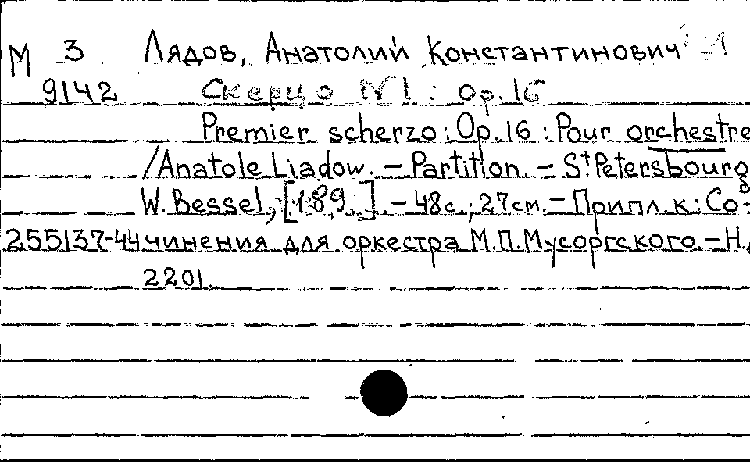 М 3 Лядов, Анатолий Константинович
9142 Скерцо № 1 : Op. 16
Premier scherzo : Op. 16 : Pour orchestre
/Anatole Liadow. – Partition. – St Petersbourg
W. Bessel, [189 ]. – 48 с.; 27 см. – Припл. к: Со-
255137-44 чинения для оркестра М.П. Мусоргского. – Н.
2201.